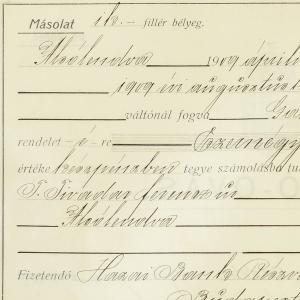 Másolat ik.- fillér bélyeg.
Alsólendva 1909 április
1909 évi augusztus
váltónál fogva
rendelet - é - re
értéke készpénzben tegye számolásba
T. Tivadar Ferencz úr
Alsólendva
Fizetendő Hazai Bank Részv
Budapest